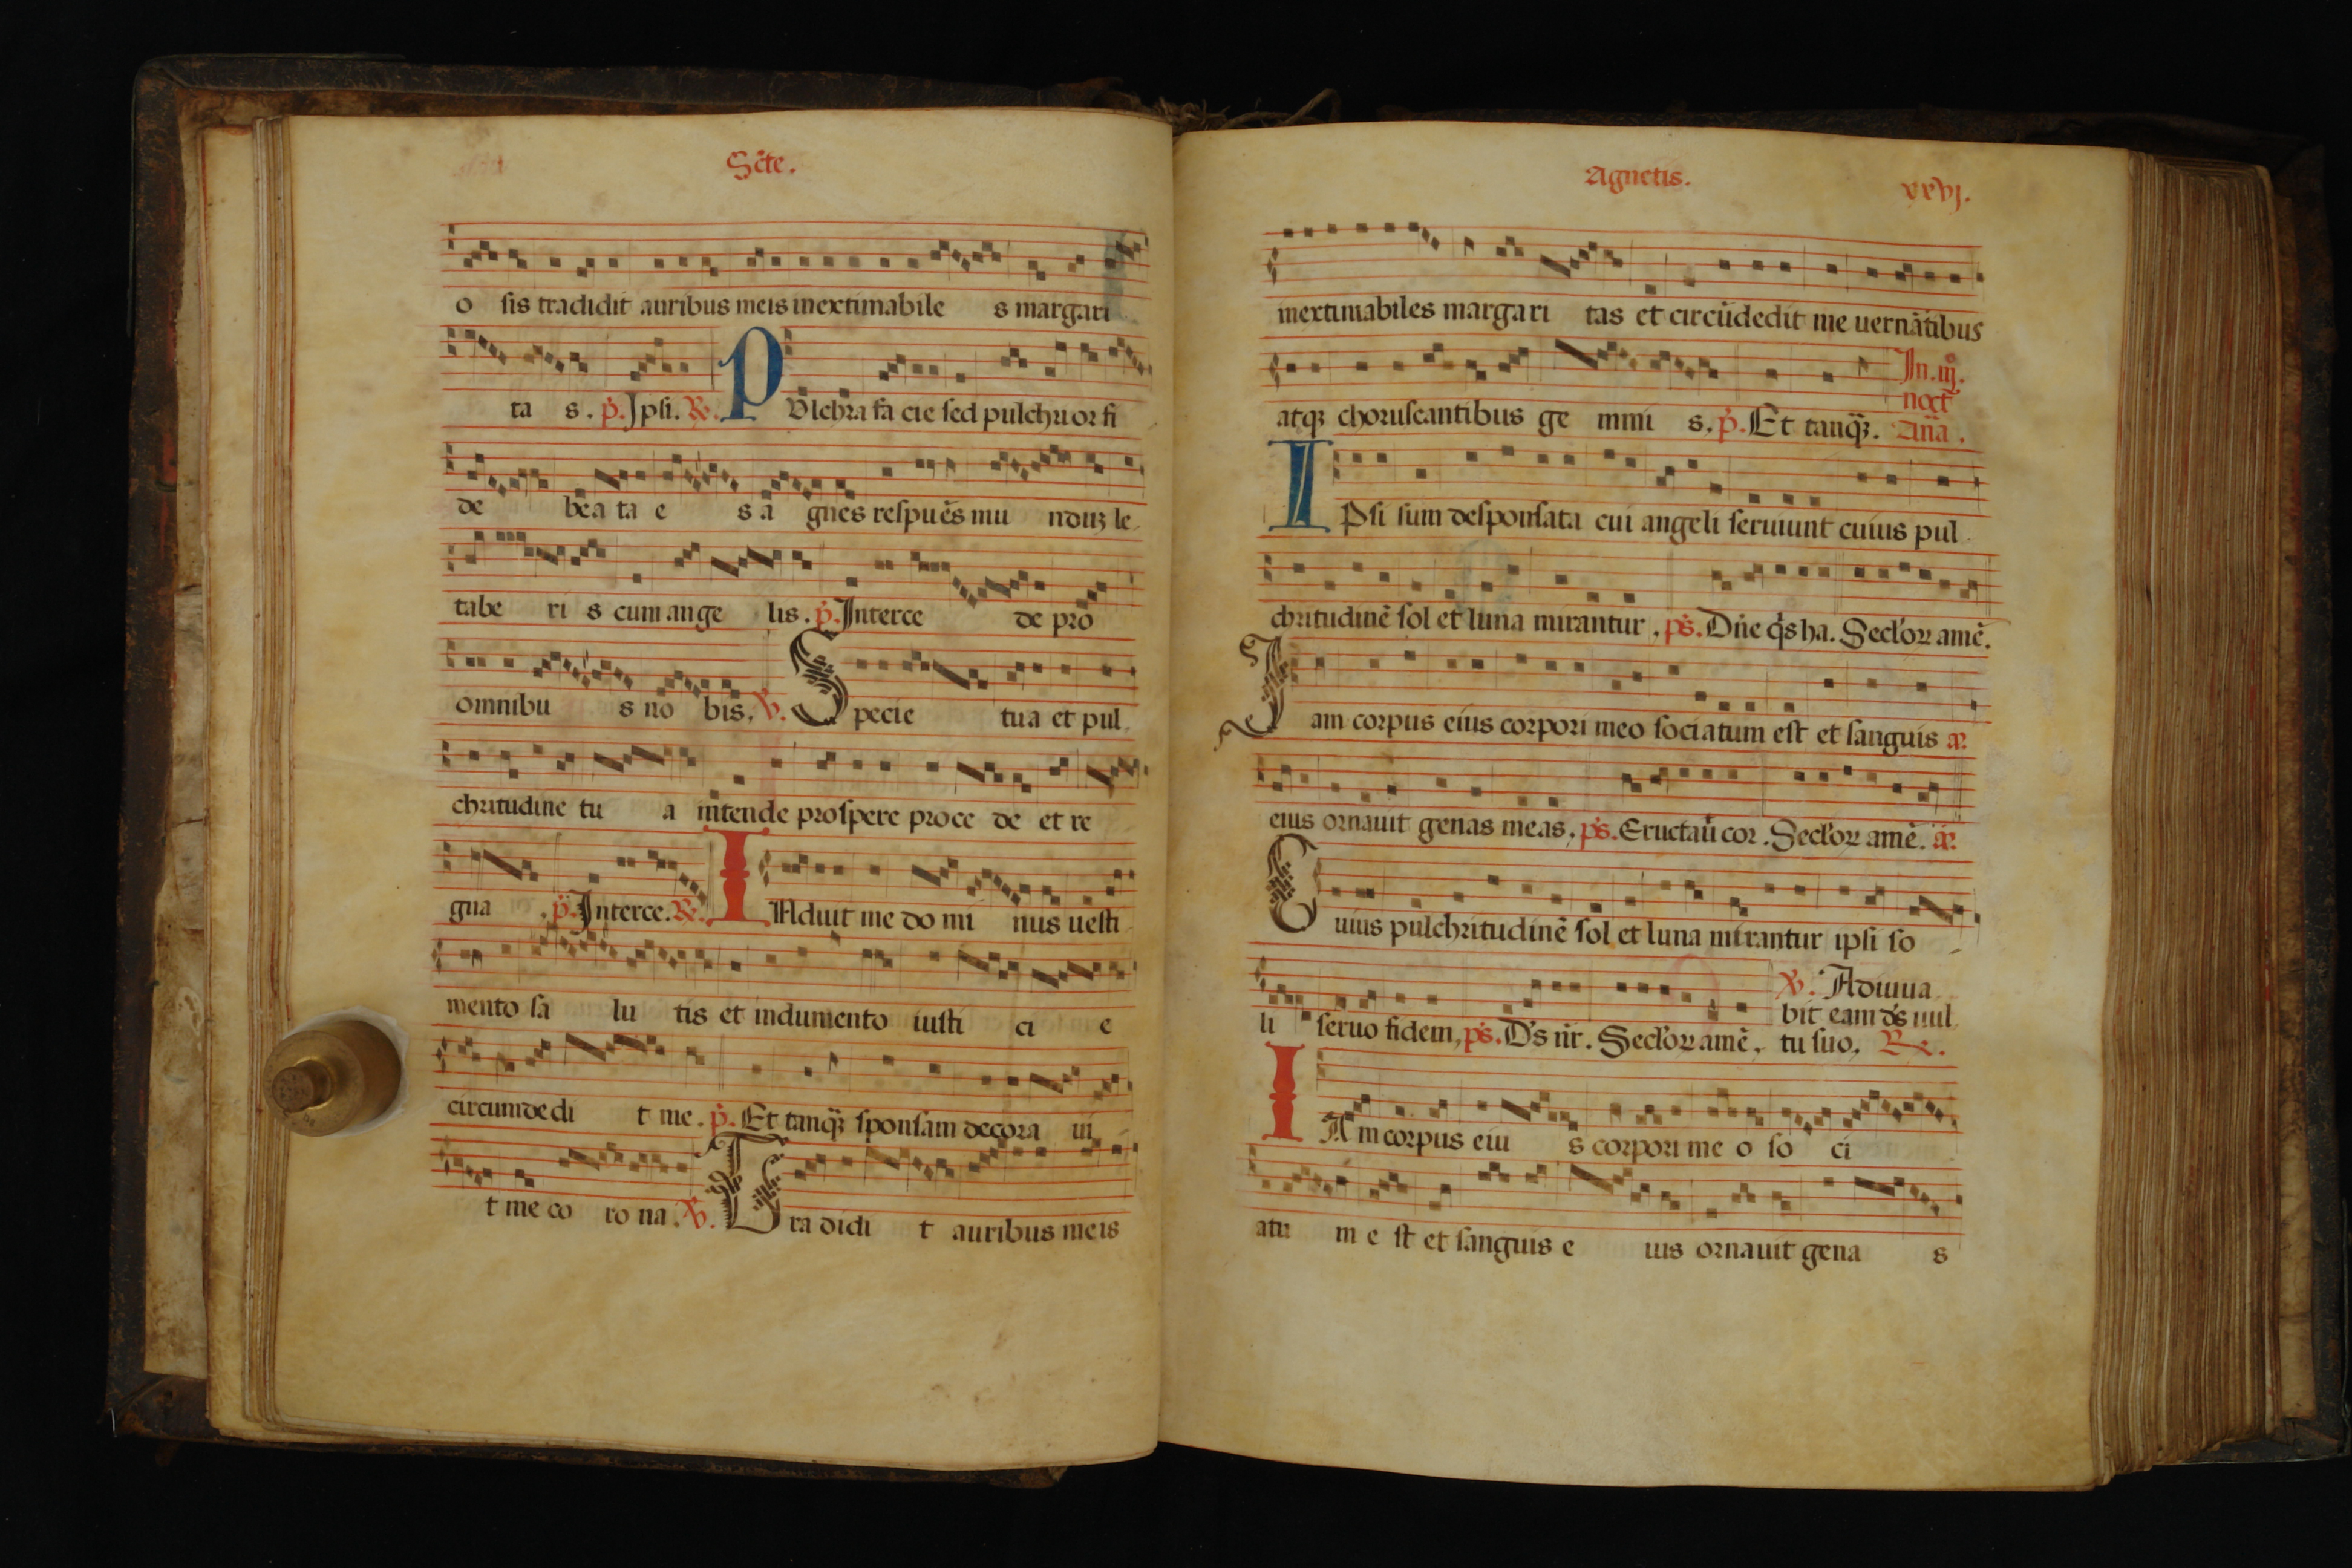 Scte.
o sis tradidit auribus meis inextimabile s margari
ta s. p. Ipsi. R. PUlchra fa cie sed pulchri or fi
de bea ta e s a gnes respuēs mu nduꝫ le
tabe ri s cum ange lis. p. Interce de pro
omnibu s no bis. V. Specie tua et pul
chritudine tu a intende prospere proce de et re
gna . p. Interce. R. INduit me do mi nus uesti
mento sa lu tis et indumento iusti ci e
circumdedi t me. p. Et tanqꝫ sponsam decora ui
t me co ro na. V. Tra didi t auribus meis
Agnetis. xxvj.
inextimabiles margari tas et circūdedit me uernātibus
atqꝫ choruscantibus ge mmi s. p. Et tanqꝫ. In .iij.
noct̄
Añā.
IPsi sum desponsata cui angeli seruiunt cuius pul
chritudinē sol et luna mirantur. ps. Dn̄e q̄s ha. Secloꝝ amē.
Iam corpus eius corpori meo sociatum est et sanguis a.
eius ornauit genas meas. ps. Eructaū cor. Secloꝝ amē. a.
Cuius pulchritudinē sol et luna mirantur ipsi so
li seruo fidem. ps. Ds nr̄. Secloꝝ amē. V. Adiuua
bit eam ds uul
tu suo. R.
IAm corpus eiu s corpori me o so ci
atu m e st et sanguis e ius ornauit gena s